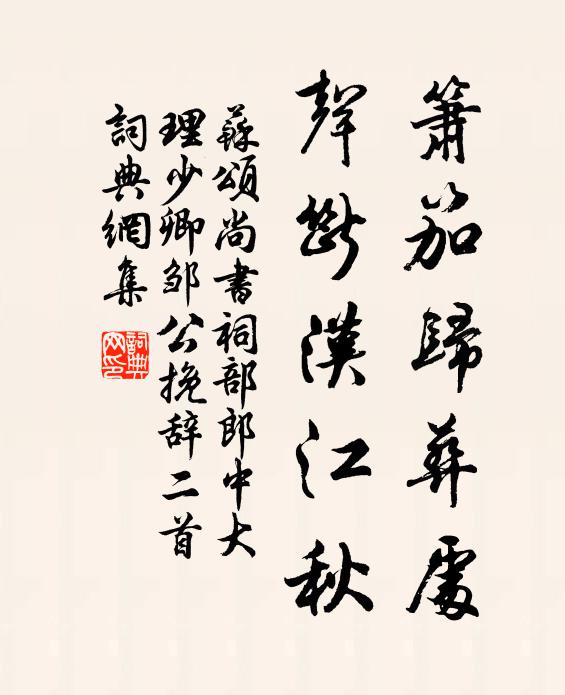 簫笳歸葬處
聲斷漢江秋
蘇頌尚書祠部郎中大
理少卿邹公挽辞二首
詞典網集
詞典
网印